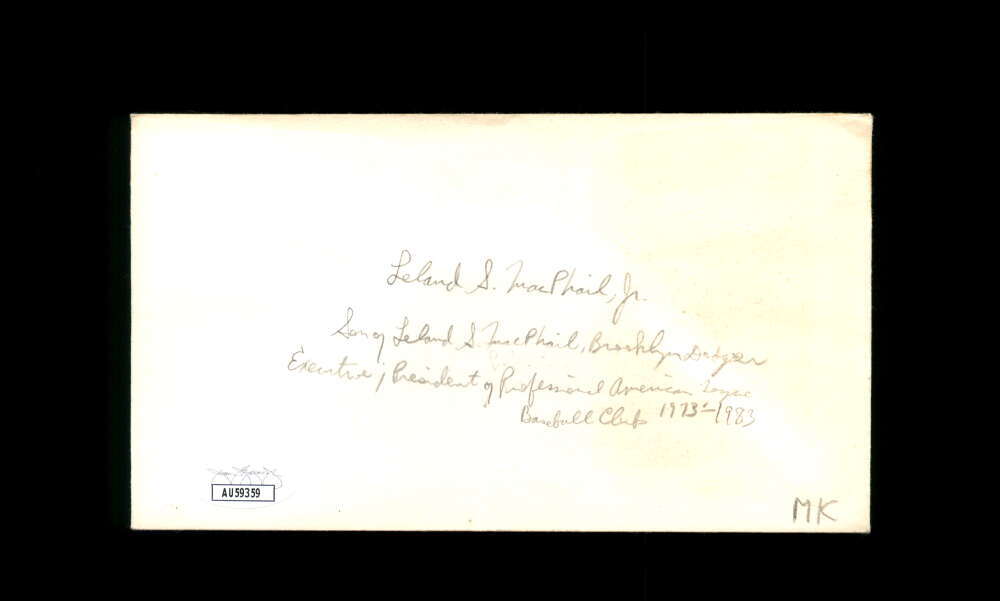 Leland S. MacPhail, Jr.
Son of Leland S. MacPhail, Brooklyn Dodger
Executive; President of Professional American League
Baseball Clubs 1973-1983
AU59359
MK